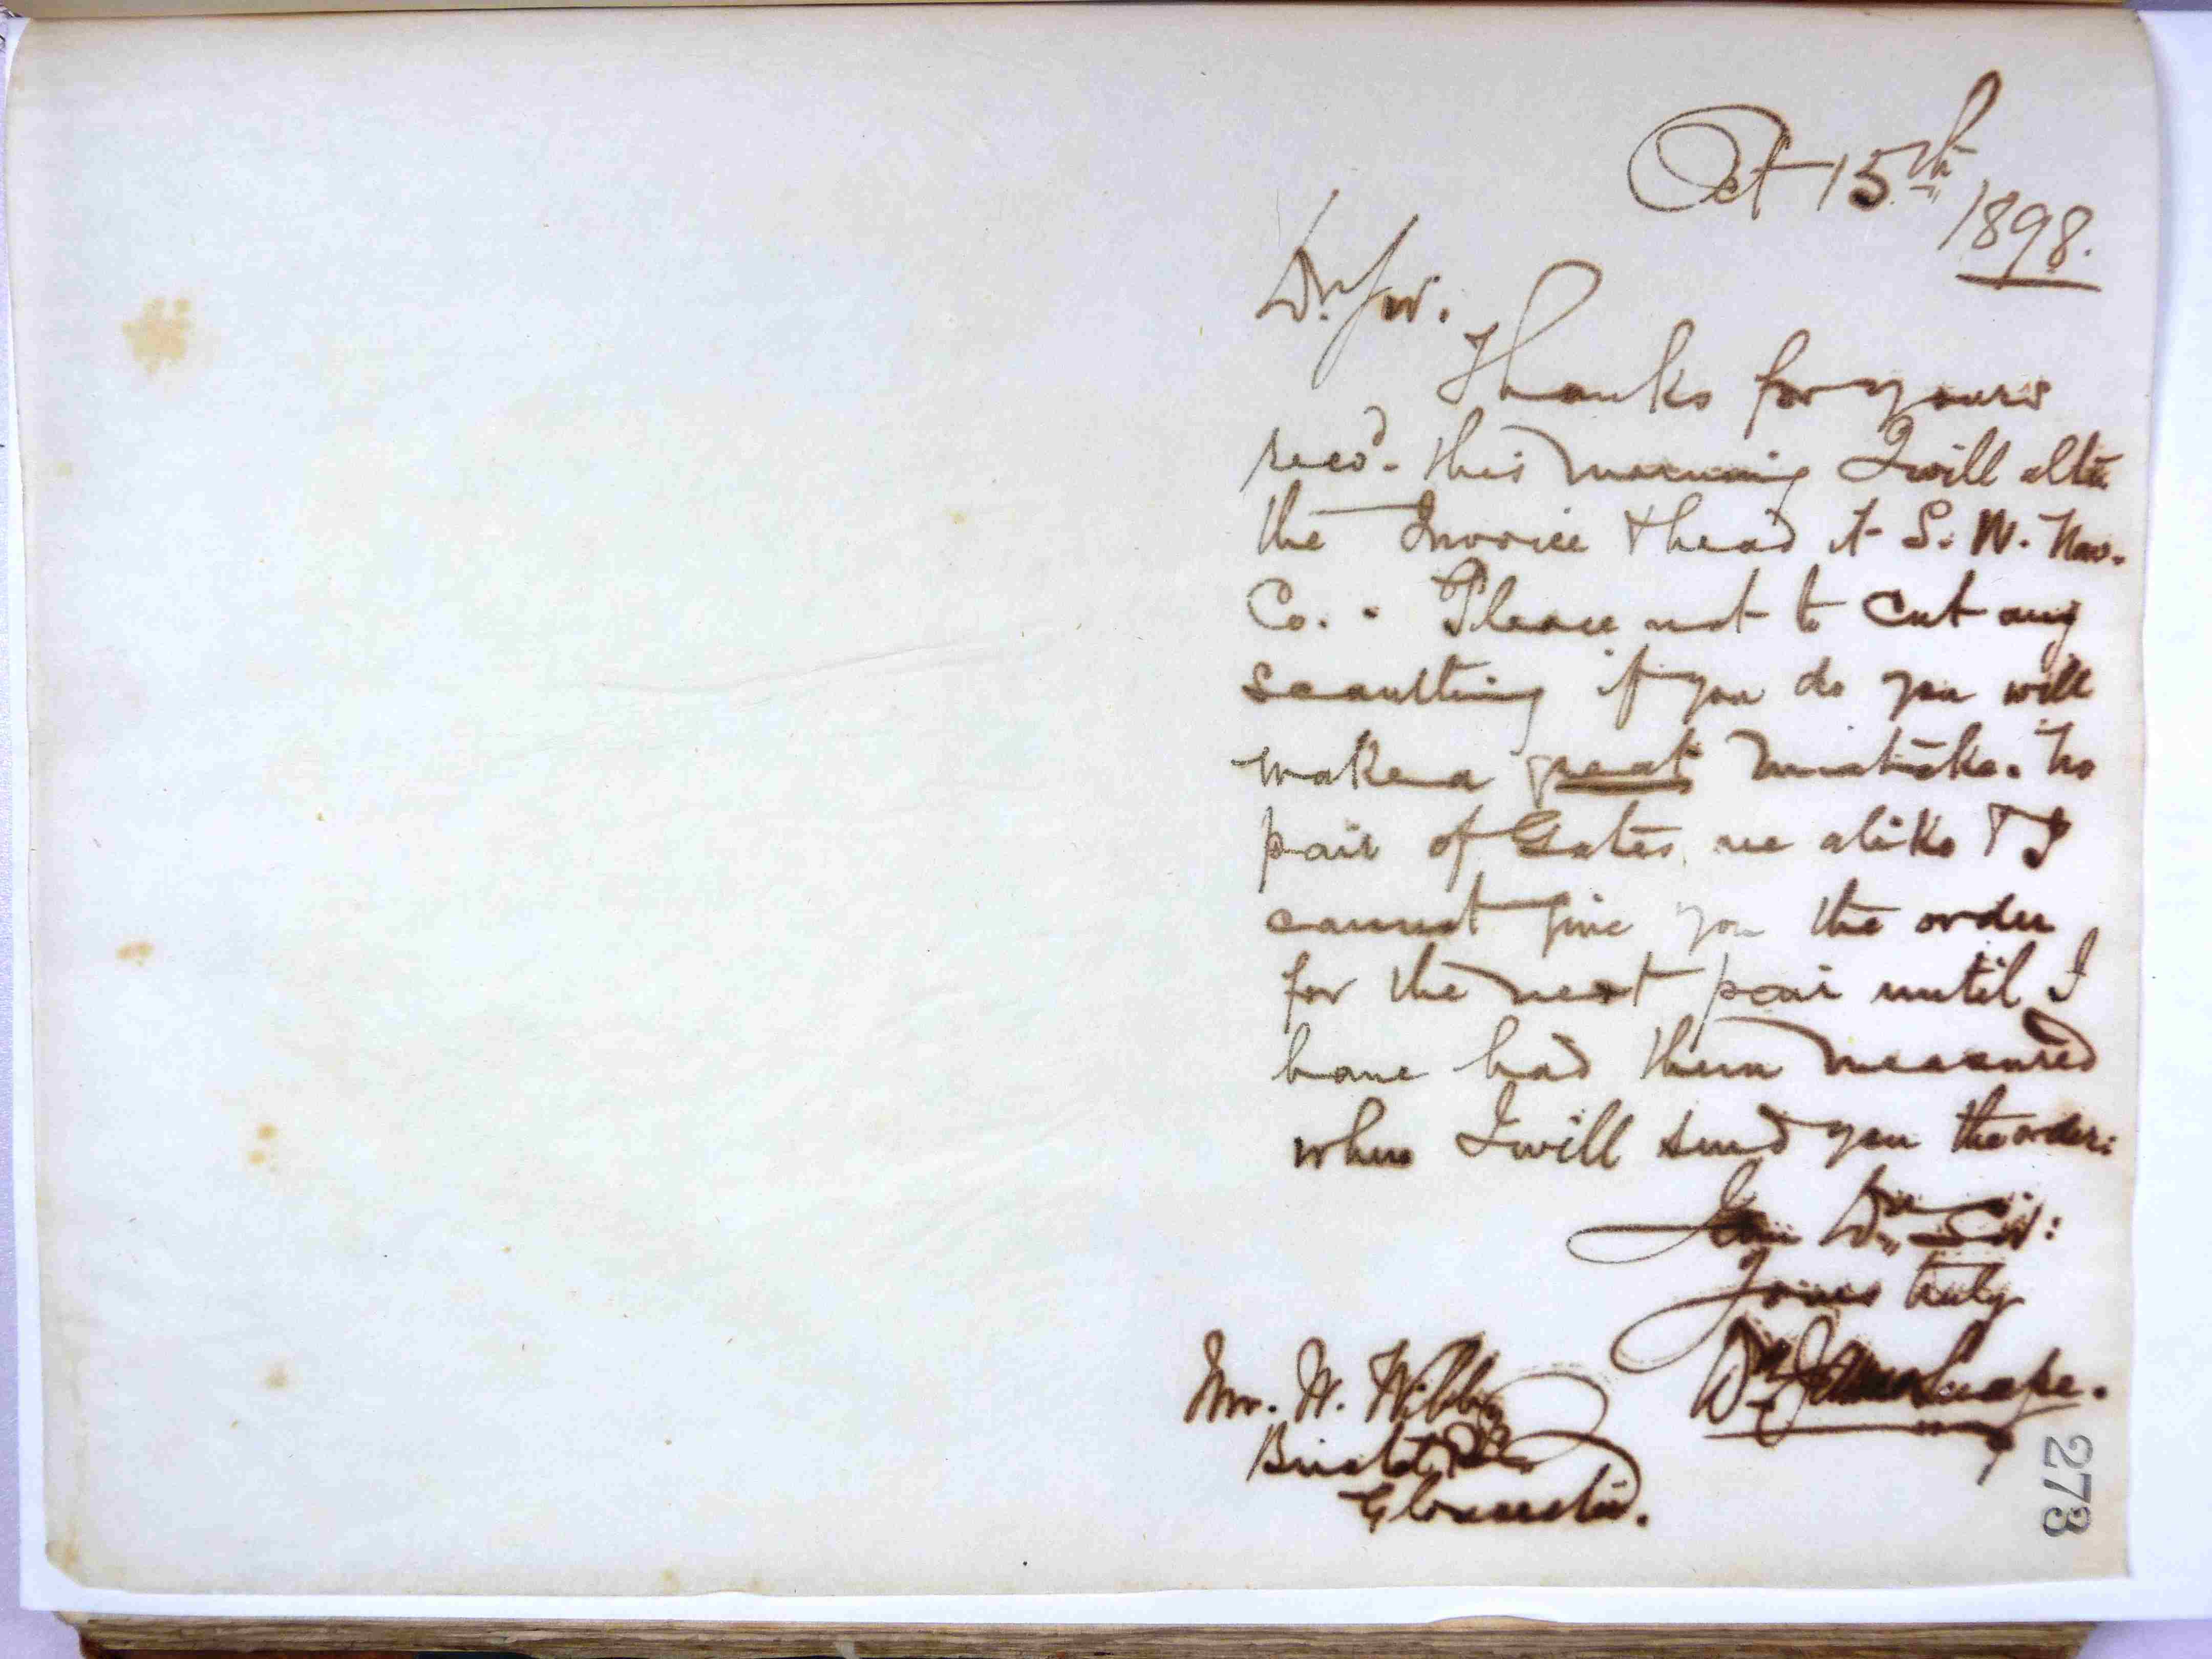 Oct 15th
1898.
Dr Sir.
Thanks for yours
recd. this morning I will alter
the Invoice & head it S. N. Nav.
Co. - Please not to cut any
scantling if you do you will
make a great mistake. No
pair of Gates are alike & I
cannot give you the order
for the next pair until I
have had them measured
when I will send you the order:
I am Dr Sir:
Yours truly
Wm Jones Snape.
Mr. W. Wibby
Bristol Rd
Gloucester.
273